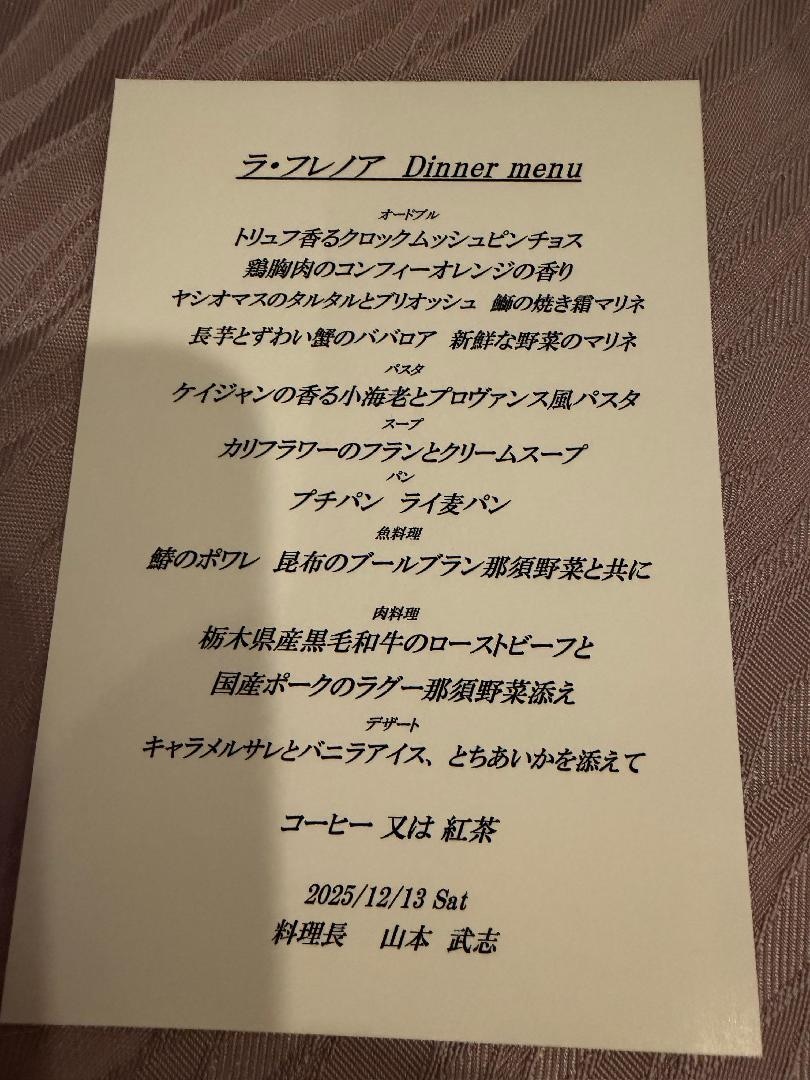 ラ・フレノア Dinner menu
オードブル
トリュフ香るクロックムッシュピンチョス
鶏胸肉のコンフィーオレンジの香り
ヤシオマスのタルタルとブリオッシュ 鰤の焼き霜マリネ
長芋とずわい蟹のババロア 新鮮な野菜のマリネ
パスタ
ケイジャンの香る小海老とプロヴァンス風パスタ
スープ
カリフラワーのフランとクリームスープ
パン
プチパン ライ麦パン
魚料理
鰆のポワレ 昆布のブールブラン那須野菜と共に
肉料理
栃木県産黒毛和牛のローストビーフと
国産ポークのラグー那須野菜添え
デザート
キャラメルサレとバニラアイス、とちあいかを添えて
コーヒー 又は 紅茶
2025/12/13 Sat
料理長 山本 武志